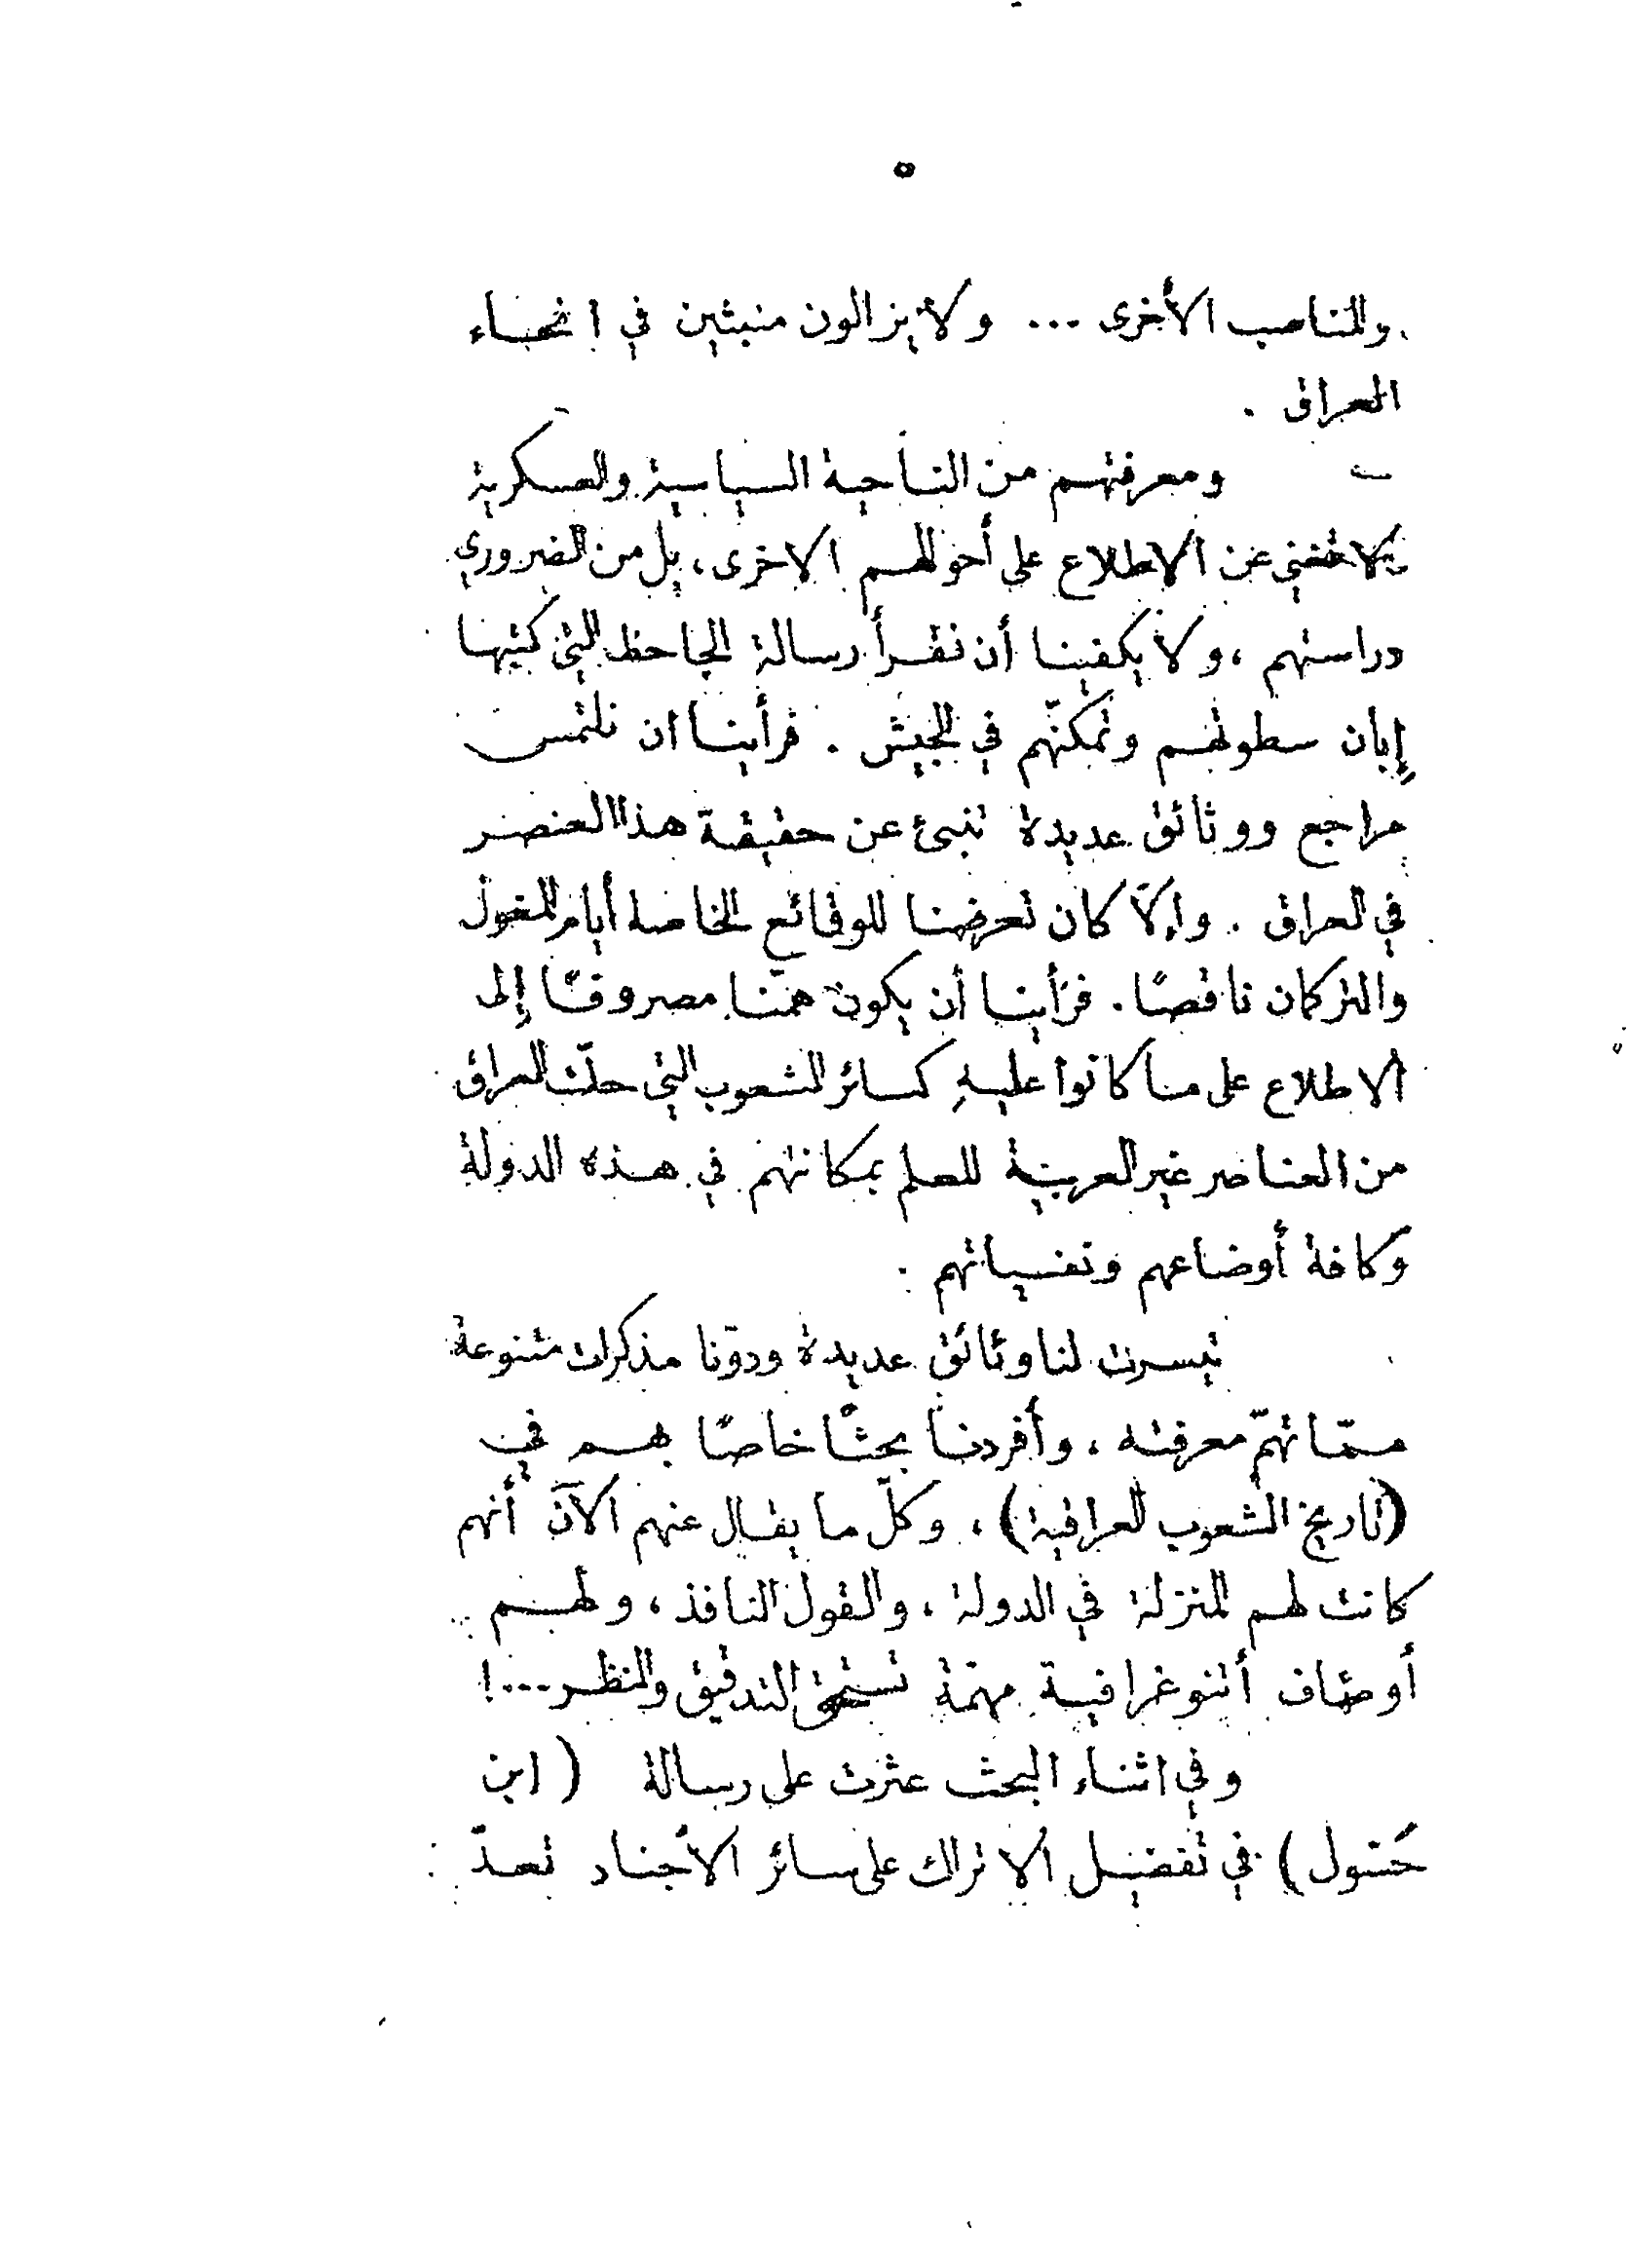 ٥
والمناصب الأخرى ... ولا يزالون منبثين في انحاء
العراق .
ومعرفتهم من الناحية السياسية والعسكرية
لا تغني عن الاطلاع على أحوالهم الاخرى، بل من الضروري
دراستهم ، ولا يكفينا أن نقرأ رسالة الجاحظ التي كتبها
إبان سطوتهم وتمكنّهم في الجيش . فرأينا ان نلتمس
مراجع ووثائق عديدة تنبئ عن حقيقة هذا العنصر
في العراق . وإلاّ كان تعرضنا للوقائع الخاصة أيام المغول
والتركمان ناقصًا . فرأينا أن يكون همّنا مصروفًا إلى
الاطلاع على ما كانوا عليهِ كسائر الشعوب التي حلّت العراق
من العناصر غير العربية للعلم بمكانتهم في هذه الدولة
وكافة أوضاعهم ونفسياتهم .
تيسرت لنا وثائق عديدة ودوّنا مذكرات متنوعة
ممّا تهمّ معرفته ، وأفردنا بحثًا خاصًا بهم في
(تاريخ الشعوب العراقية) ، وكلّ ما يقال عنهم الآن أنهم
كانت لهم المنزلة في الدولة ، والقول النافذ ، ولهم
أوصاف أثنوغرافية مهمّة تستحق التدقيق والنظر ...!
وفي اثناء البحث عثرت على رسالة ( ابن
حَسّول ) في تفضيل الاتراك على سائر الأجناد تعدّ